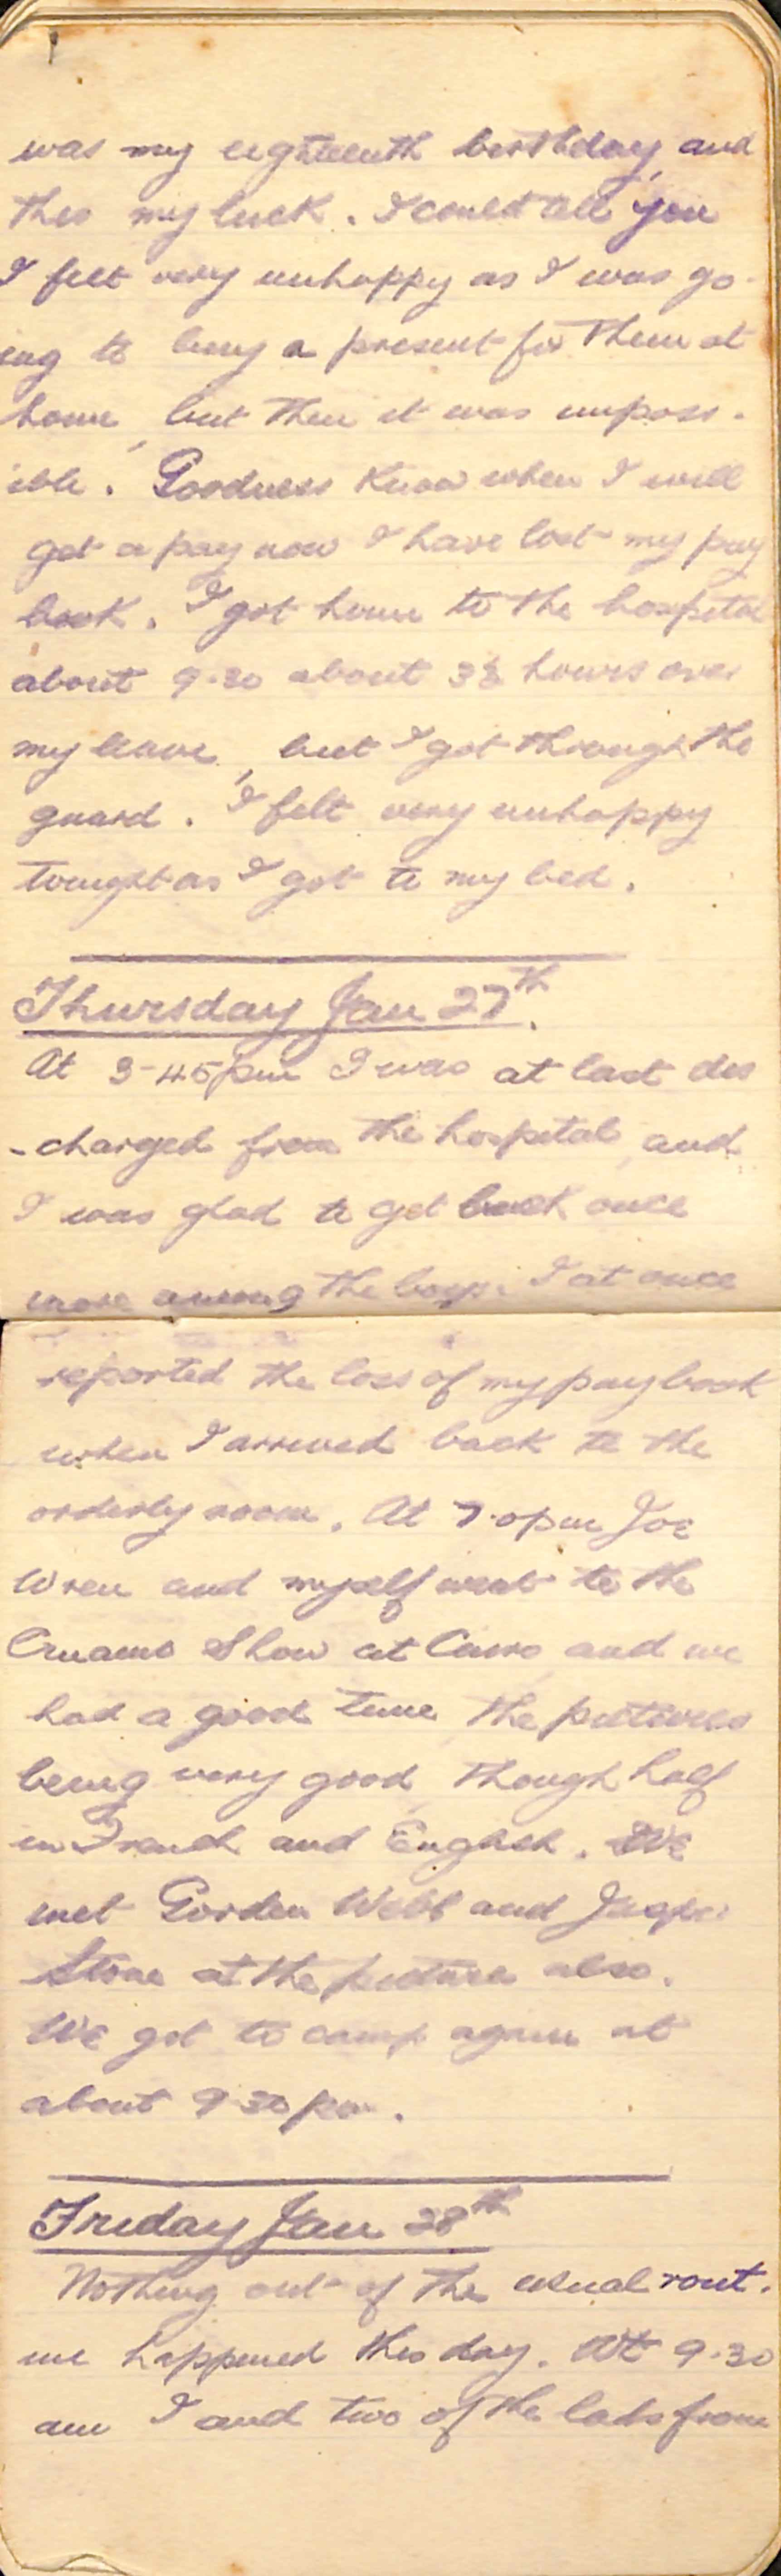 was my eighteenth birthday, and
this my luck. I could tell you
I felt very unhappy as I was go-
ing to buy a present for them at
home, but then it was imposs-
ible. Goodness know when I will
get a pay now I have lost my pay
book. I got home to the hospital
about 9.30 about hours over
my leave, but I got through the
guard. I felt very unhappy
tonight as I got to my bed.
Thursday Jan 27th.
At 3-45pm I was at last dis
-charged from the hospital, and
I was glad to get back once
more among the boys. I at once
reported the loss of my paybook
when I arrived back to the
orderly room. At 7.0pm Joe
Wren and myself went to the
Show at Cairo, and we
had a good time, the pictures
being very good though half
in French and English. We
met Gorden Webb and
Stone at the picture also.
We got to camp again at
about 9 30 pm.
Friday Jan 28th
Nothing out of the usual rout.
ine happened this day. At 9.30
am I and two of the lads from